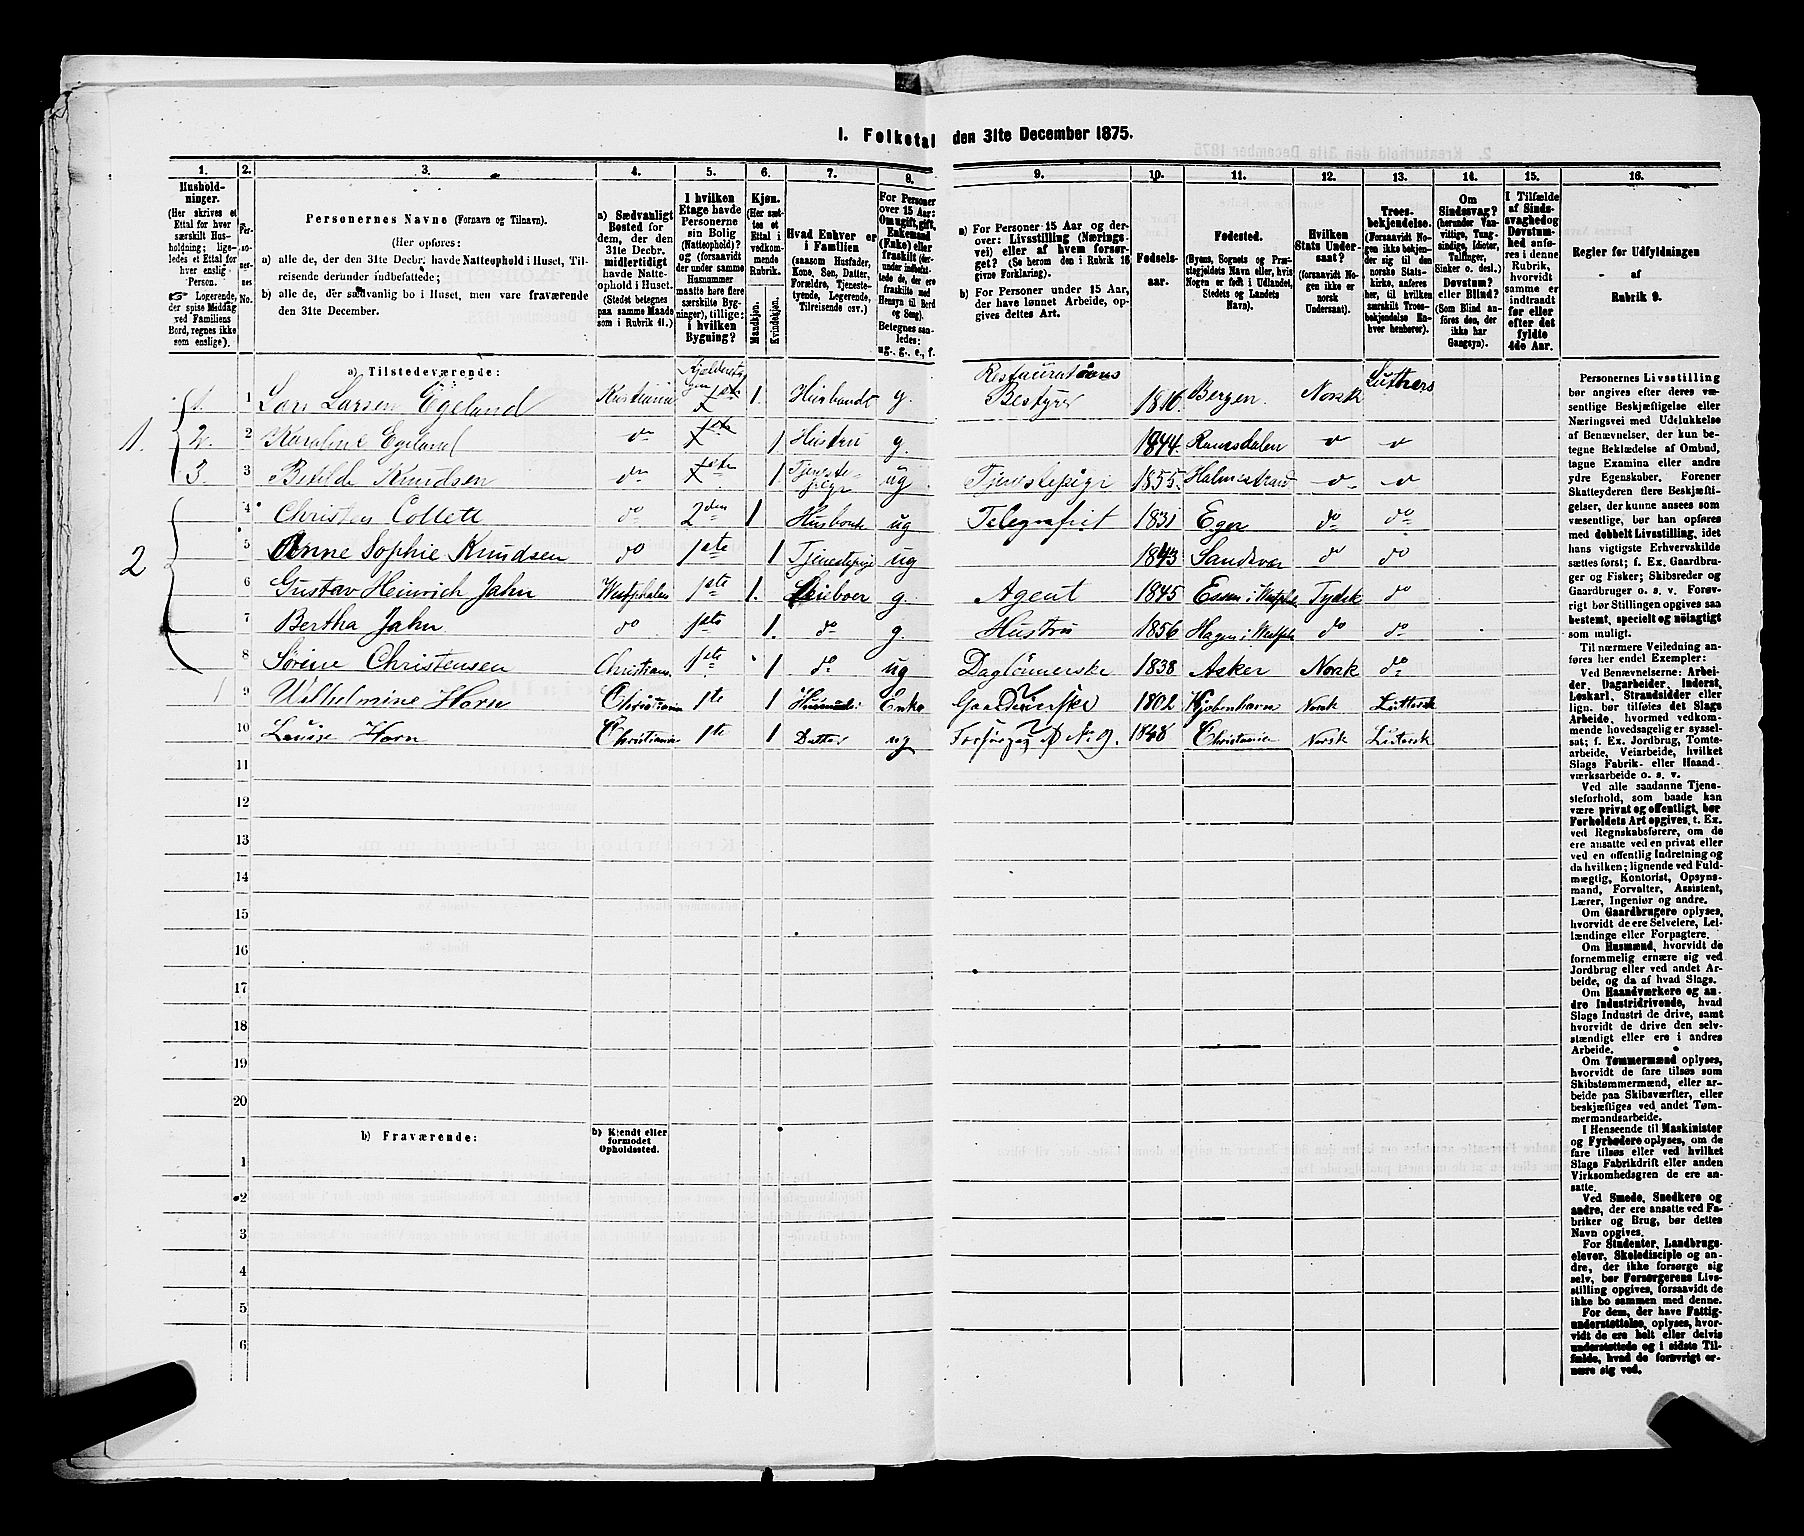 I. Folketal den 31te December 1875.
1. 2. 3. 4. 5. 6. 7. 8. 9. 10. 11. 12. 13. 14. 15. 16.
Hushold-
ninger.
(Her skrives et
Ettal for hver
særskilt Hus-
holdning; lige-
ledes et Ettal for
hver enslig
Person.
Logerende,
der spise Middag
ved Familiens
Bord, regnes ikke
som enslige).
Per-
so-
ner-
nes
No.
Personernes Navne (Fornavn og Tilnavn).
(Her opføres:
a) alle de, der den 31te Decbr. havde Natteophold i Huset, Til-
reisende derunder indbefattede;
b) alle de, der sædvanlig bo i Huset, men vare fraværende
den 31te December.
a) Sædvanligt
Bosted for
dem, der den
31te Decbr.
midlertidigt
havde Natte-
ophold i Huset.
(Stedet betegnes
paa samme Maade
som i Rubrik 11.)
I hvilken
Etage havde
Personerne
sin Bolig
(Natteophold)?
og (forsaavidt
der under samme
Husnummer
maatte høre flere
særskilte Byg-
ninger), tillige:
i hvilken
Bygning?
Kjøn.
(Her sæt-
tes et
Ettal i
vedkom-
mende
Rubrik.
Mandkjøn.
Kvindekjøn.
Hvad Enhver er
i Familien
(saasom Husfader,
Kone, Søn, Datter,
Forældre, Tjeneste-
tyende, Logerende,
Tilreisende osv.)
For Personer
over 15 Aar:
Om ugift, gift,
Enkemand
(Enke) eller
fraskilt (der-
under indbefat-
tede de, der ere
fraskilte med
Hensyn til Bord
og Seng).
Betegnes saa-
ledes:
ug., g., e., f.
a) For Personer 15 Aar og der-
over: Livsstilling (Nærings-
vei) eller af hvem forsør-
get? (Se herom den i Rubrik 16
givne Forklaring).
b) For Personer under 15 Aar,
der have lønnet Arbeide, op-
gives dettes Art.
Fødsels-
aar.
Fødested.
(Byens, Sognets og Præ-
stegjeldets Navn eller, hvis
Nogen er født i Udlandet,
Stedets og Landets
Navn).
Hvilken
Stats Under-
saat?
(forsaavidt No-
gen ikke er
norsk
Undersaat).
Troes-
bekjendelse.
(Forsaavidt No-
gen ikke bekjen-
der sig til den
norske Stats-
kirke, anføres
her, til hvilken
særskilt Troes-
bekjendelse En-
hver henhører).
Om
Sindssvag?
(herunder Van-
vittige, Tung-
sindige, Idioter,
Tullinger,
Sinker o. desl.)
Døvstum?
eller Blind?
(Som Blind an-
føres den, der
ikke har
Gangsyn).
I Tilfælde
af Sinds-
svaghed og
Døvstum-
hed anfø-
res i denne
Rubrik,
hvorvidt
samme er
indtraadt
før eller
efter det
fyldte
4de Aar.
Regler for Udfyldningen
af
Rubrik 9.
a) Tilstedeværende:
1. { 1. 1 Lars Larsen Egeland Kristiania Kjelderetagen 1. Husbonde g. Restaurations Bestyrer 1816. Bergen. Norsk Luthers
2. 2 Karoline Egeland do 1 Hustru g. 1844. Romsdalen do do
3. 3 Betilde Knudsen do 1. Tjenestepige ug Tjenestepige 1855. Holmestrand do do
2 { 4 Christen Collett do 2den 1 Husbonde ug Telegrafist 1831 Eger do do
5 Anne Sophie Knudsen do 1ste 1 Tjenestepige ug 1843 Sandsvær do do
6 Gustav Heinrich Jahn Westphalen 1ste 1. Leieboer g. Agent 1845 Essen i Westphalen Tydsk do
7 Bertha Jahn do 1ste 1. do g. Hustru 1856 Hagen i Westfalen do do
8 Sørine Christensen Christiania 1ste 1 do ug Daglønnerske 1838 Asker Norsk do
1 9 Wilhelmine Horn Christiania 1te 1 Enke 1802 Kjøbenhavn Norsk Luthersk
10 Louise Horn Christiania 1te 1 Datter ug Forsørges af No 9. 1848 Christiania Norsk Lutersk
11
12
13
14
15
16
17
18
19
20
b) Fraværende:
b) Kjendt eller
formodet
Opholdssted.
1
2
3
4
5
6
Personernes Livsstilling
bør angives efter deres væ-
sentlige Beskjæftigelse eller
Næringsvei med Udelukkelse
af Benævnelser, der kun be-
tegne Beklædelse af Ombud,
tagne Examina eller andre
ydre Egenskaber. Forener
Skatteyderen flere Beskjæfti-
gelser, der kunne ansees som
væsentlige, bør han opføres
med dobbelt Livsstilling, idet
hans vigtigste Erhvervskilde
sættes først; f. Ex. Gaardbru-
ger og Fisker; Skibsreder og
Gaardbruger o. s. v. Forøv-
rigt bør Stillingen opgives saa
bestemt, specielt og nøiagtigt
som muligt.
Til nærmere Veiledning an-
føres her endel Exempler:
Ved Benævnelserne: Arbei-
der, Dagarbeider, Inderst,
Løskarl, Strandsidder eller
lign. bør tilføies det Slags
Arbeide, hvormed vedkom-
mende hovedsagelig er syssel-
sat; f. Ex. Jordbrug, Tomte-
arbeide, Veiarbeide, hvilket
Slags Fabrik- eller Haand-
værksarbeide o. s. v.
Ved alle saadanne Tjene-
steforhold, som baade kan
være privat og offentligt, bør
Forholdets Art opgives, t. Ex.
ved Regnskabsførere, om de
ere ansatte ved en privat eller
ved en offentlig Indretning og
da hvilken; lignende ved Fuld-
mægtig, Kontorist, Opsyns-
mand, Forvalter, Assistent,
Lærer, Ingeniør og andre.
Om Gaardbrugere oplyses,
hvorvidt de ere Selveiere, Lei-
lændinge eller Forpagtere.
Om Husmænd, hvorvidt de
fornemmelig ernære sig ved
Jordbrug eller ved andet Ar-
beide, og da af hvad Slags.
Om Haandværkere og an-
dre Industridrivende, hvad
Slags Industri de drive, samt
hvorvidt de drive den selv-
stændigt eller ere i andres
Arbeide.
Om Tømmermænd oplyses,
hvorvidt de fare tilsøs som
Skibstømmermænd, eller ar-
beide paa Skibsværfter, eller
beskjæftiges ved andet Tøm-
mermandsarbeide.
I Henseende til Maskinister
og Fyrbødere oplyses, om de
fare tilsøs eller ved hvilket
Slags Fabrikdrift eller anden
Virksomhedsgren de ere an-
satte.
Ved Smede, Snedkere og
andre, der ere ansatte ved Fa-
briker og Brug, bør dettes
Navn opgives.
For Studenter, Landbrugs-
elever, Skoledisciple og an-
dre, der ikke forsørge sig
selv, bør Forsørgerens Livs-
stilling opgives, forsaavidt de
ikke bo sammen med denne.
For dem, der have Fattig-
understøttelse, oplyses, hvor-
vidt de ere helt eller delvis
understøttede og i sidste Til-
fælde, hvad de forøvrigt er-
nære sig ved.